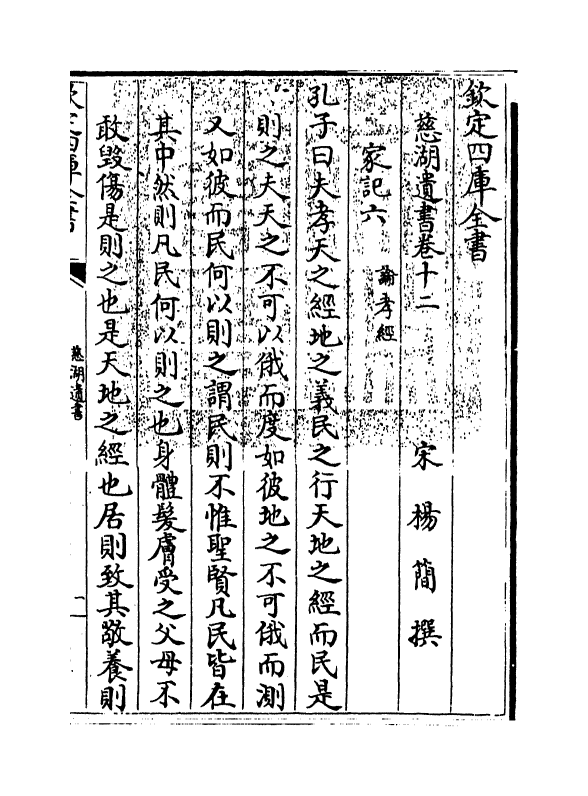 欽定四庫全書
慈湖遺書卷十二
宋楊簡撰
家記六
論孝經
孔子曰夫孝天之經地之義民之行天地之經而民是
則之夫天之不可以俄而度如彼地之不可俄而測
又如彼而民何以則之謂民則不惟聖賢凡民皆在
其中然則凡民何以則之也身體髮膚受之父母不
敢毀傷是則之也是天地之經也居則致其敬養則
欽定四庫全書
慈湖遺書